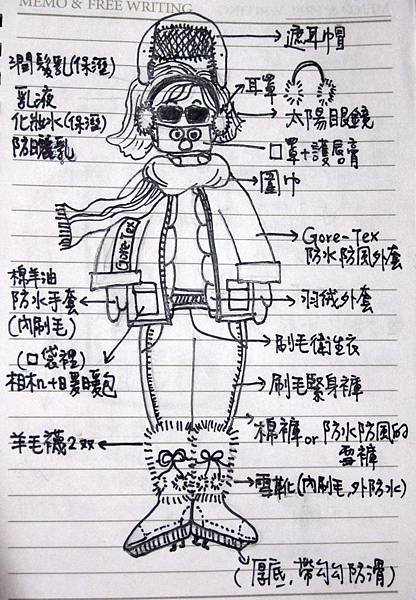 MEMO & FREE WRITING
遮耳巾冒
潤髮乳(保溼)
乳液
化妝水(保溼)
防日曬乳
耳罩
太陽目艮鏡
口罩+護唇膏
圍巾
Gore-Tex
Gore-Tex
防水防風外套
棉羊油
防水手套
(內刷毛)
羽絨外套
(口袋裡)
相木n+日暖日暖包
刷毛衛生衣
刷毛緊身褲
羊毛襪2双
棉褲or防水防風的
雪褲
雪靴(內刷毛,外防水)
(厚底,帶勾勾防滑)